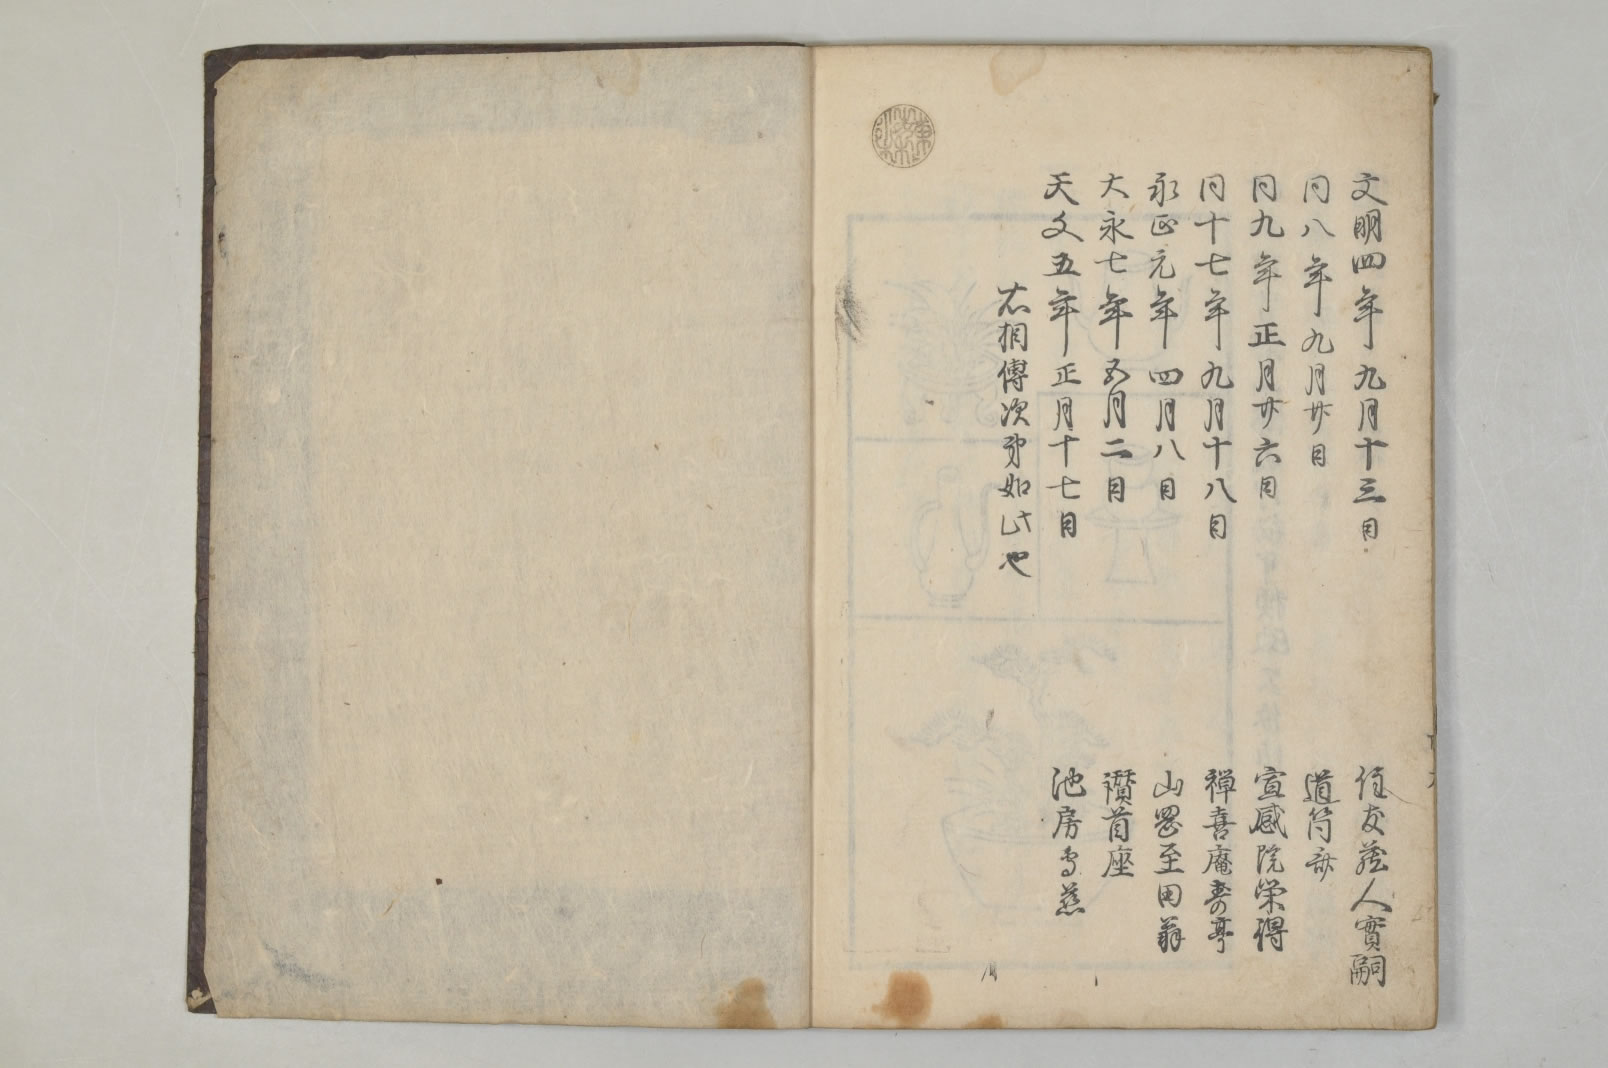 文明四年九月十三日
同八年九月廿日
同九年正月廿六日
同十七年九月十八日
永正元年四月八日
大永七年五月二日
天文五年正月十七日
右相傳次第如此也
住友蔵人實嗣
道筒
宣感院栄得
禅喜庵寿亭
山岡至田翁
讃首座
池房専慈